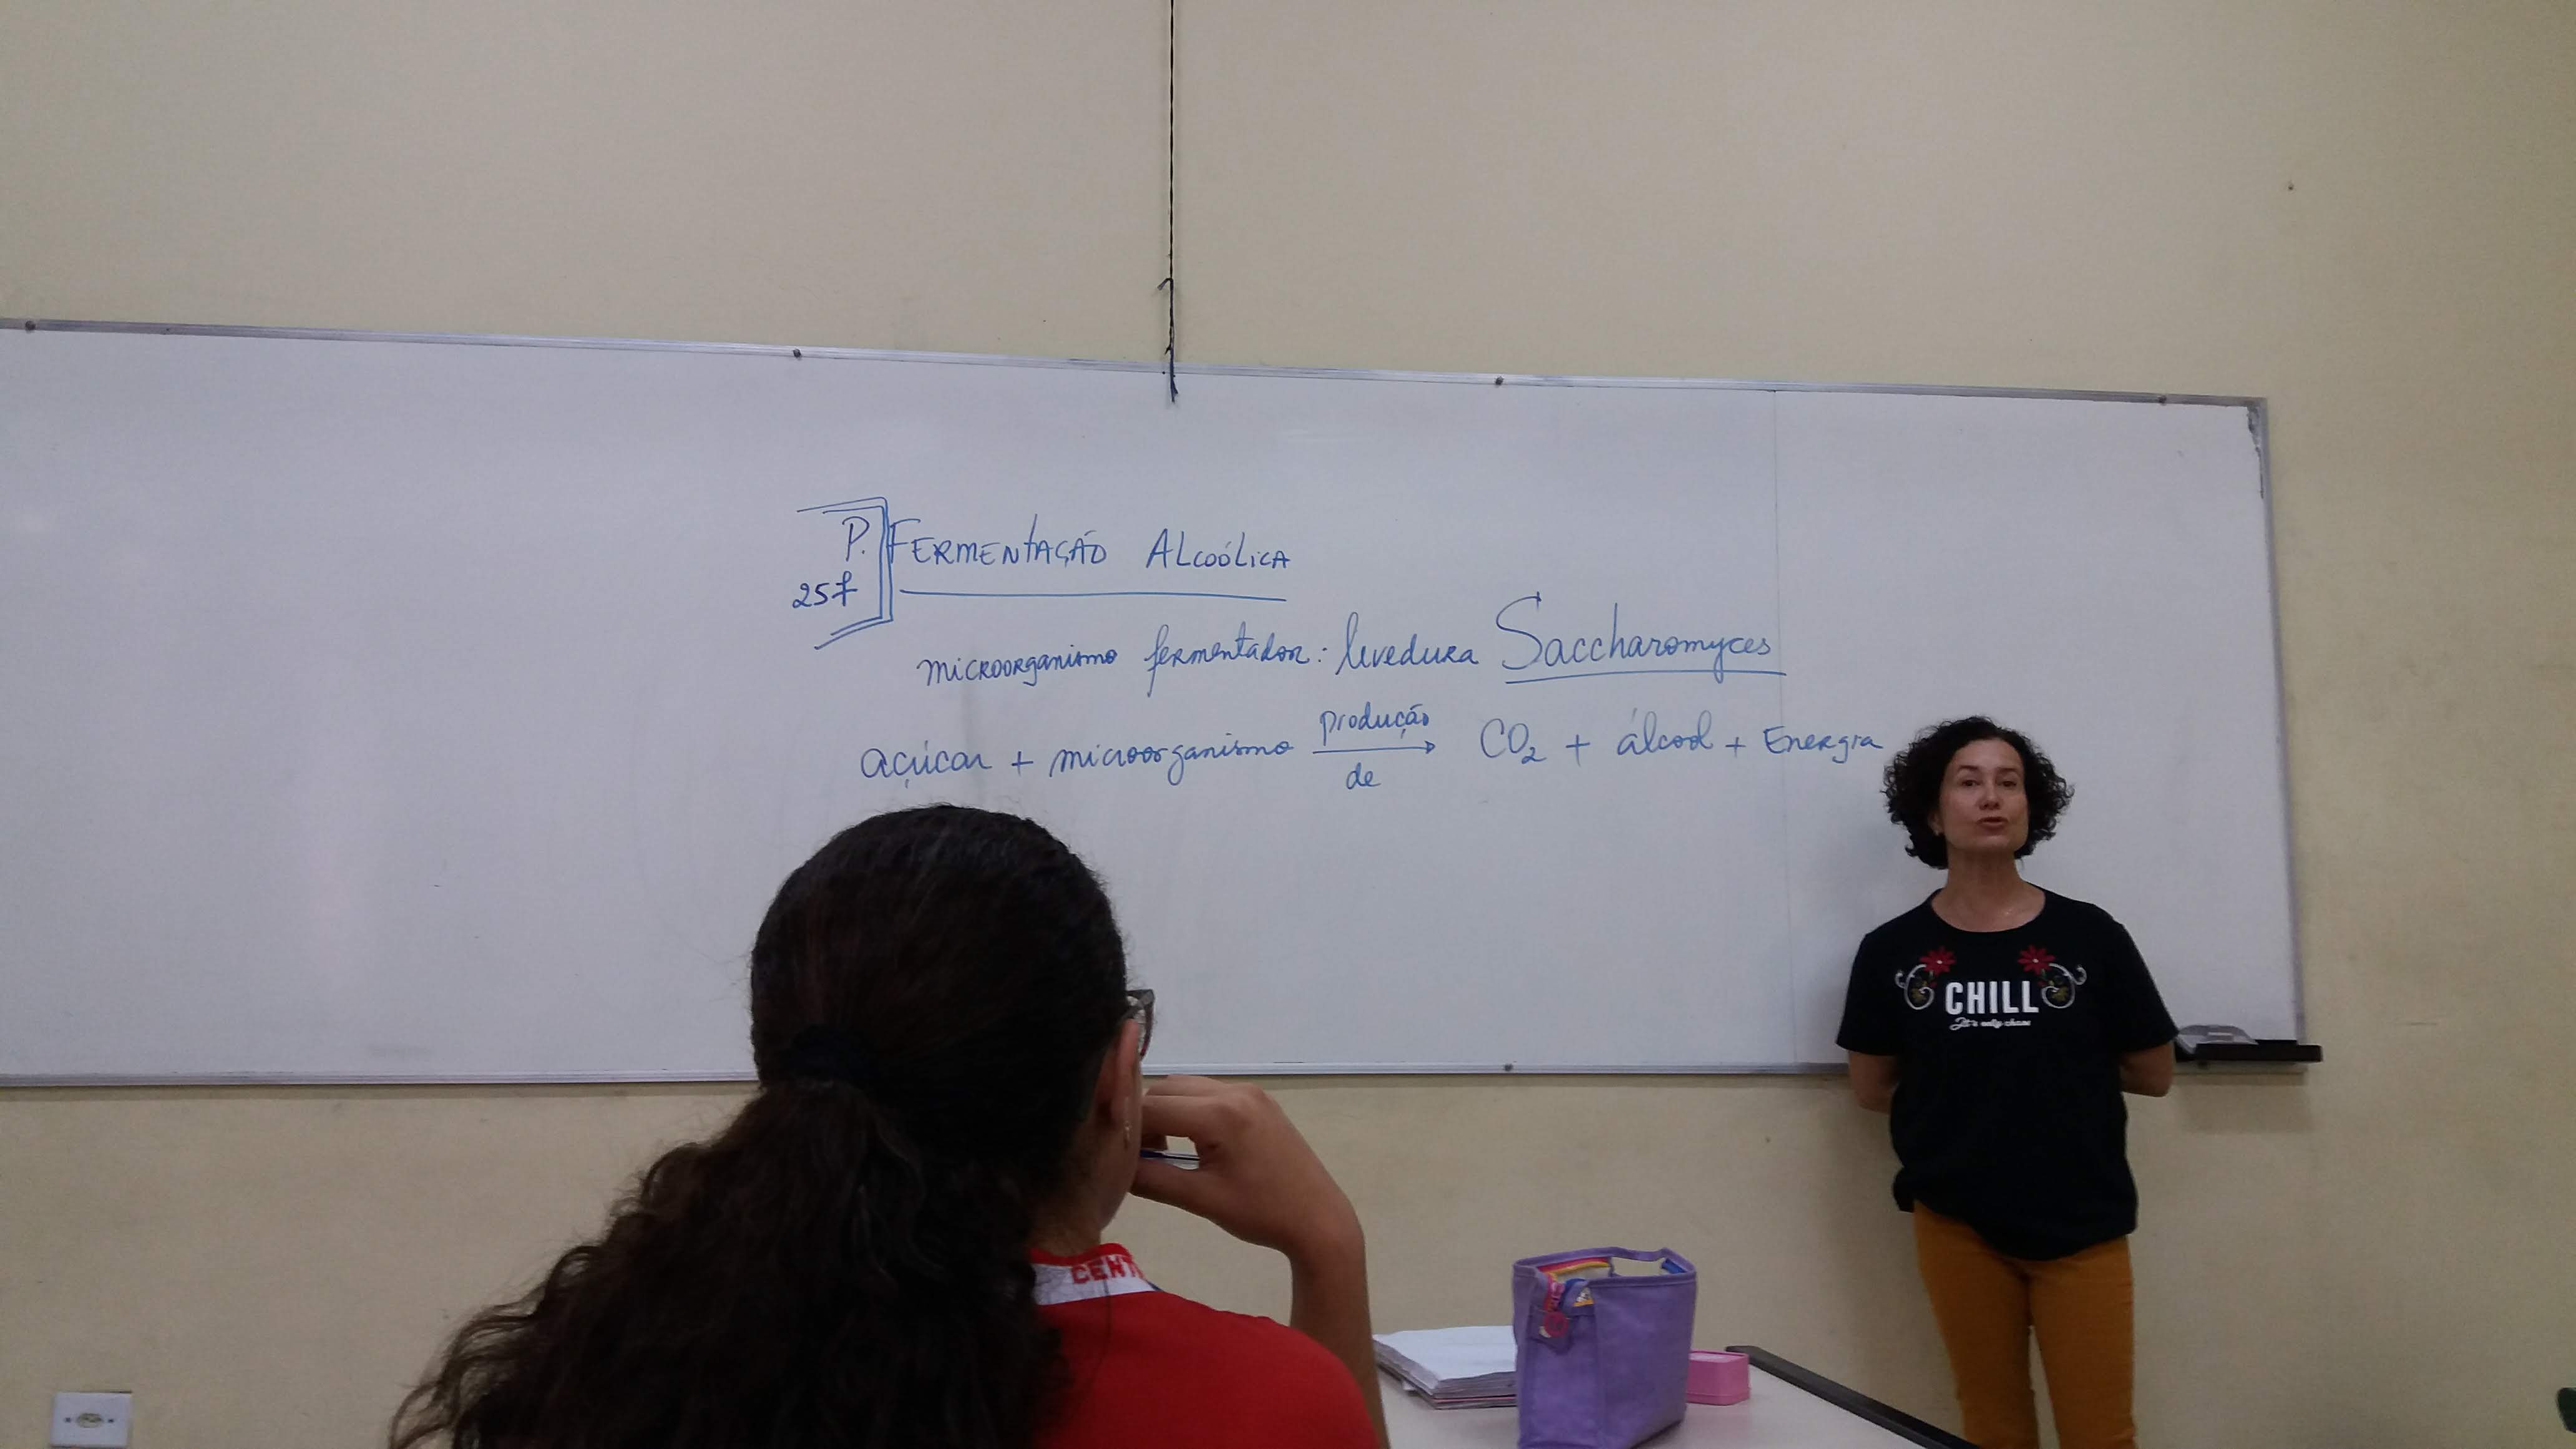 P.
257
FERMENTAÇÃO ALCOÓLICA
microorganismo fermentador: levedura Saccharomyces
açúcar + microorganismo produção de → CO₂ + álcool + Energia
CHILL
CENT